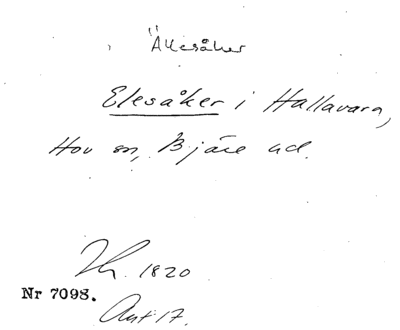 Ällesåker
Elesåker i Hallavara,
Hov sn, Bjäre hd.
1820
Nr 7098.
Avt 17.